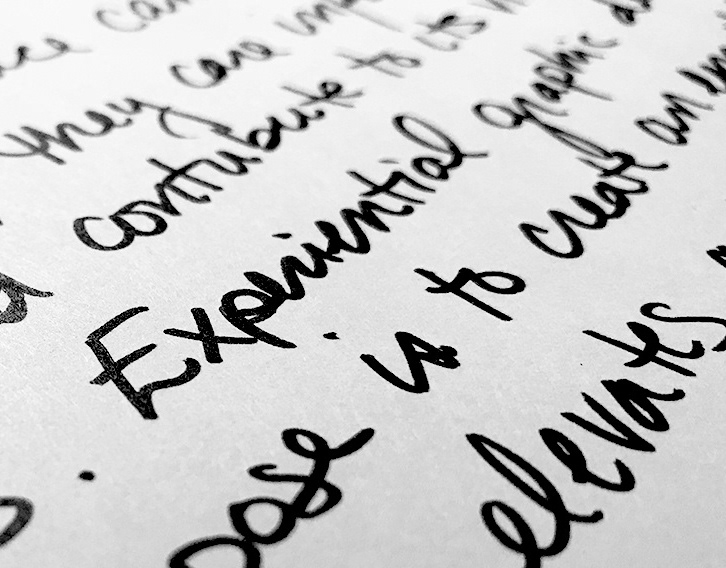 they care
contribute to its
Experiential graphic
is to create an
pose elevates